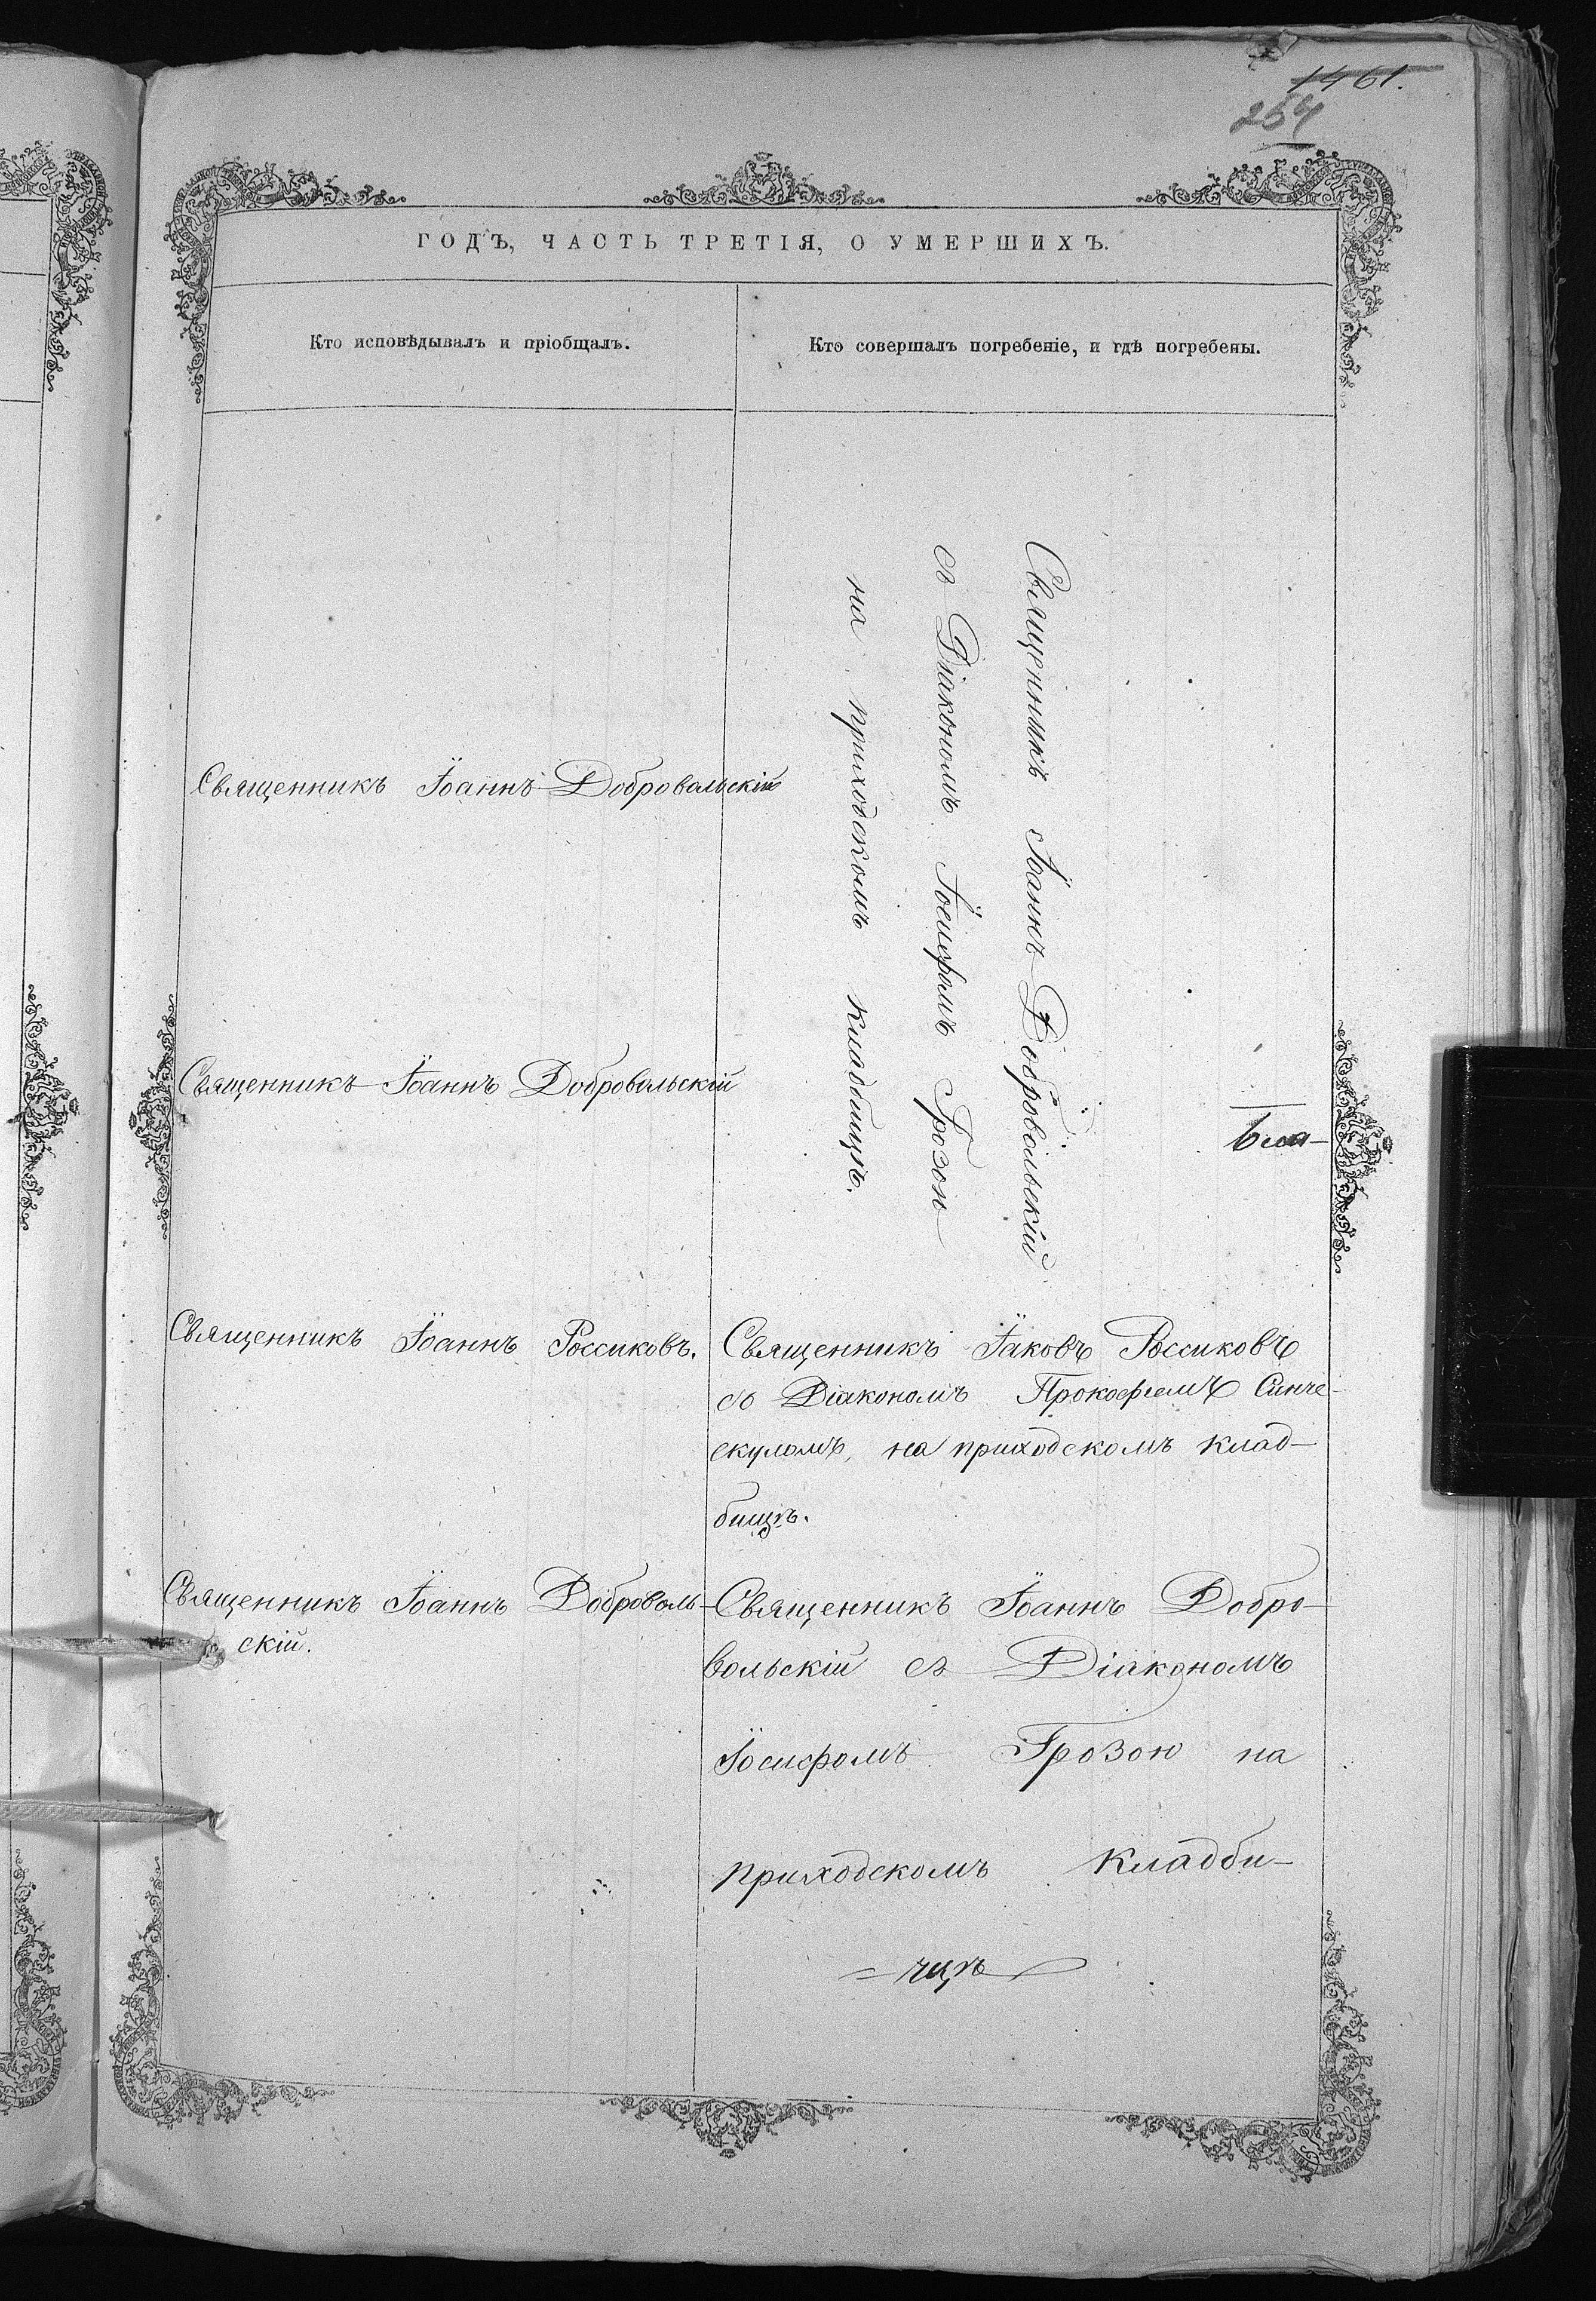 1461.
254
ГОДЪ, ЧАСТЬ ТРЕТІЯ, О УМЕРШИХЪ.
Кто исповѣдывалъ и пріобщалъ.
Кто совершалъ погребеніе, и гдѣ погребены.
Священникъ Іоаннъ Добровольскій
Священникъ Іоаннъ Добровольскій
съ Діакономъ Іосифомъ Грозою
на приходскомъ кладбищѣ.
Священникъ Іоаннъ Добровольскій
Священникъ Іоаннъ Россиковъ.
Священникъ Іаковъ Россиковъ
съ Діакономъ Прокофіемъ Синче-
скуломъ, на приходскомъ клад-
бищѣ.
Священникъ Іоаннъ Доброволь-
скій.
Священникъ Іоаннъ Добро-
вольскій съ Діакономъ
Іосифомъ Грозою на
приходскомъ кладби-
щѣ